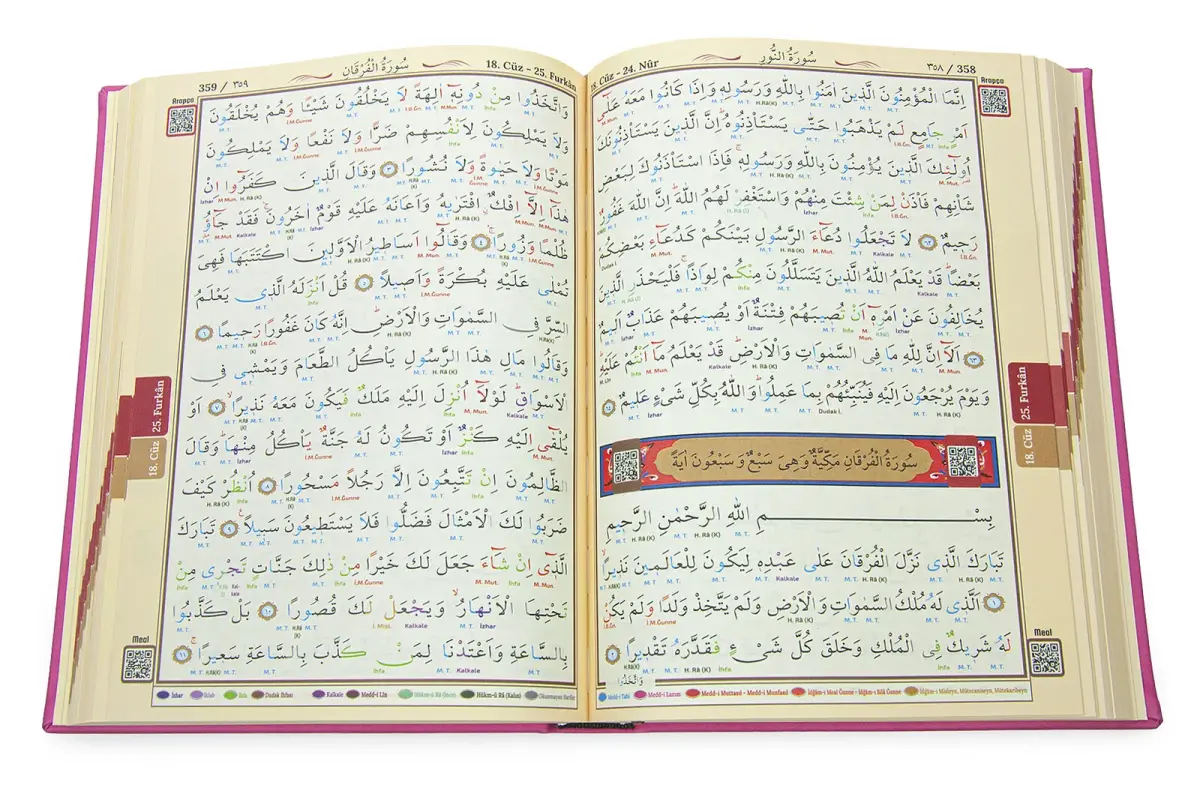 ٣٥٨ / 358
سُورَةُ النُّورِ
18. Cüz - 24. Nûr
Arapça
اِنَّمَا الْمُؤْمِنُونَ الَّذِينَ اٰمَنُوا بِاللّٰهِ وَرَسُولِهِ وَاِذَا كَانُوا مَعَهُ عَلٰٓى
اَمْرٍ جَامِعٍ لَمْ يَذْهَبُوا حَتّٰى يَسْتَأْذِنُوهُ اِنَّ الَّذِينَ يَسْتَأْذِنُونَكَ
اُو۬لٰٓئِكَ الَّذِينَ يُؤْمِنُونَ بِاللّٰهِ وَرَسُولِهِ فَاِذَا اسْتَأْذَنُوكَ لِبَعْضِ
شَأْنِهِمْ فَأْذَنْ لِمَنْ شِئْتَ مِنْهُمْ وَاسْتَغْفِرْ لَهُمُ اللّٰهَ اِنَّ اللّٰهَ غَفُورٌ
رَحِيمٌ ﴿٦٢﴾ لَا تَجْعَلُوا دُعَٓاءَ الرَّسُولِ بَيْنَكُمْ كَدُعَٓاءِ بَعْضِكُمْ
بَعْضًا قَدْ يَعْلَمُ اللّٰهُ الَّذِينَ يَتَسَلَّلُونَ مِنْكُمْ لِوَاذًا فَلْيَحْذَرِ الَّذِينَ
يُخَالِفُونَ عَنْ اَمْرِهِٓ اَنْ تُصِيبَهُمْ فِتْنَةٌ اَوْ يُصِيبَهُمْ عَذَابٌ اَلِيمٌ
﴿٦٣﴾ اَلَٓا اِنَّ لِلّٰهِ مَا فِى السَّمٰوَاتِ وَالْاَرْضِ قَدْ يَعْلَمُ مَٓا اَنْتُمْ عَلَيْهِ
وَيَوْمَ يُرْجَعُونَ اِلَيْهِ فَيُنَبِّئُهُمْ بِمَا عَمِلُوا وَاللّٰهُ بِكُلِّ شَىْءٍ عَلِيمٌ ﴿٦٤﴾
سُورَةُ الْفُرْقَانِ مَكِّيَّةٌ وَهِىَ سَبْعٌ وَسَبْعُونَ اٰيَةً
بِسْمِ اللّٰهِ الرَّحْمٰنِ الرَّحِيمِ
تَبَارَكَ الَّذِى نَزَّلَ الْفُرْقَانَ عَلٰى عَبْدِهِ لِيَكُونَ لِلْعَالَمِينَ نَذِيرًا
﴿١﴾ اَلَّذِى لَهُ مُلْكُ السَّمٰوَاتِ وَالْاَرْضِ وَلَمْ يَتَّخِذْ وَلَدًا وَلَمْ يَكُنْ
لَهُ شَرِيكٌ فِى الْمُلْكِ وَخَلَقَ كُلَّ شَىْءٍ فَقَدَّرَهُ تَقْدِيرًا ﴿٢﴾
وَاتَّخَذُوا
Meal
Medd-i Tabî Medd-i Lazım Medd-i Muttasıl - Medd-i Munfasıl İdğam-ı Meal Ğunne - İdğam-ı Bilâ Ğunne İdğam-ı Misleyn, Mütecaniseyn, Mütekaribeyn
25. Furkân
18. Cüz
18. Cüz - 25. Furkân
سُورَةُ الْفُرْقَانِ
359 / ٣٥٩
Arapça
وَاتَّخَذُوا مِنْ دُونِهِٓ اٰلِهَةً لَا يَخْلُقُونَ شَيْـًٔا وَهُمْ يُخْلَقُونَ
وَلَا يَمْلِكُونَ لِاَنْفُسِهِمْ ضَرًّا وَلَا نَفْعًا وَلَا يَمْلِكُونَ
مَوْتًا وَلَا حَيٰوةً وَلَا نُشُورًا ﴿٣﴾ وَقَالَ الَّذِينَ كَفَرُٓوا اِنْ
هٰذَٓا اِلَّٓا اِفْكٌ افْتَرٰيهُ وَاَعَانَهُ عَلَيْهِ قَوْمٌ اٰخَرُونَ فَقَدْ جَٓاؤُ
ظُلْمًا وَزُورًا ﴿٤﴾ وَقَالُٓوا اَسَاطِيرُ الْاَوَّلِينَ اكْتَتَبَهَا فَهِىَ
تُمْلٰى عَلَيْهِ بُكْرَةً وَاَصِيلًا ﴿٥﴾ قُلْ اَنْزَلَهُ الَّذِى يَعْلَمُ
السِّرَّ فِى السَّمٰوَاتِ وَالْاَرْضِ اِنَّهُ كَانَ غَفُورًا رَحِيمًا ﴿٦﴾
وَقَالُوا مَالِ هٰذَا الرَّسُولِ يَأْكُلُ الطَّعَامَ وَيَمْشِى فِى
الْاَسْوَاقِ لَوْلَٓا اُنْزِلَ اِلَيْهِ مَلَكٌ فَيَكُونَ مَعَهُ نَذِيرًا ﴿٧﴾ اَوْ
يُلْقٰٓى اِلَيْهِ كَنْزٌ اَوْ تَكُونُ لَهُ جَنَّةٌ يَأْكُلُ مِنْهَا وَقَالَ
الظَّالِمُونَ اِنْ تَتَّبِعُونَ اِلَّا رَجُلًا مَسْحُورًا ﴿٨﴾ اُنْظُرْ كَيْفَ
ضَرَبُوا لَكَ الْاَمْثَالَ فَضَلُّوا فَلَا يَسْتَطِيعُونَ سَبِيلًا ﴿٩﴾ تَبَارَكَ
الَّذِٓى اِنْ شَٓاءَ جَعَلَ لَكَ خَيْرًا مِنْ ذٰلِكَ جَنَّاتٍ تَجْرِى مِنْ
تَحْتِهَا الْاَنْهَارُ وَيَجْعَلْ لَكَ قُصُورًا ﴿١٠﴾ بَلْ كَذَّبُوا
بِالسَّاعَةِ وَاَعْتَدْنَا لِمَنْ كَذَّبَ بِالسَّاعَةِ سَعِيرًا ﴿١١﴾
Meal
İzhar İklab İhfa Dudak İhfası Kalkale Medd-i Lîn Hükm-ü Râ (İnce) Hükm-ü Râ (Kalın) Okunmayan Harfler
25. Furkân
18. Cüz